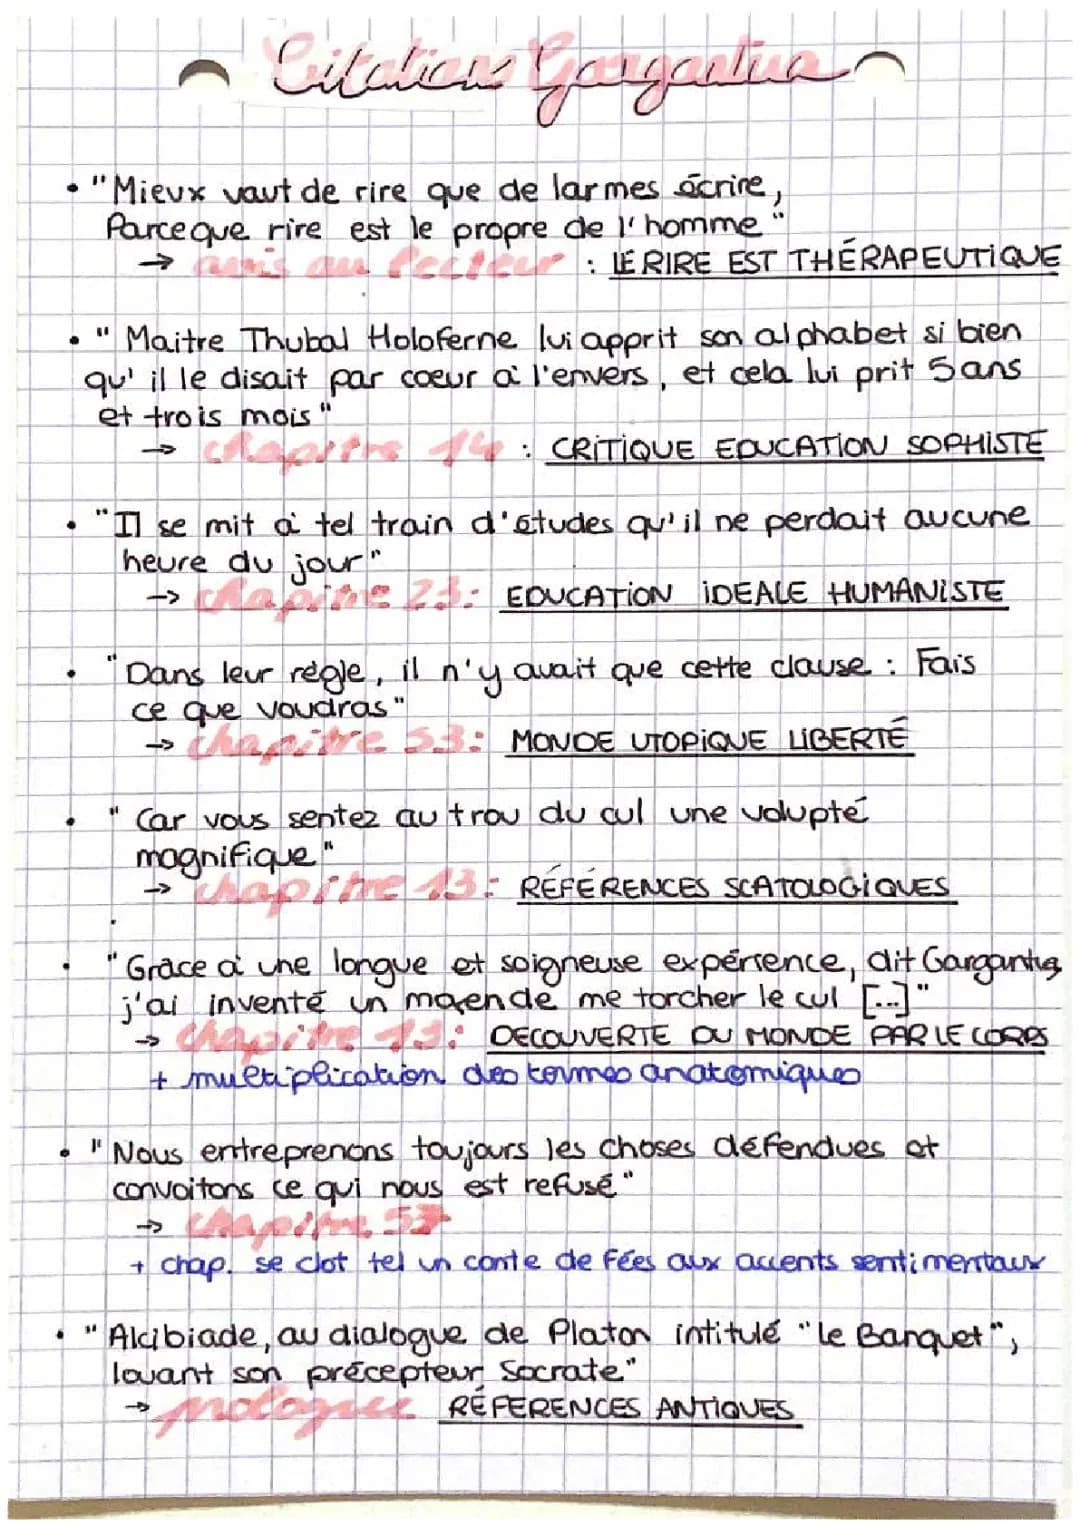 Citations Gargantua
• "Mieux vaut de rire que de larmes écrire,
Parce que rire est le propre de l'homme"
→ avis au lecteur : LE RIRE EST THÉRAPEUTIQUE
• " Maitre Thubal Holoferne lui apprit son alphabet si bien
qu'il le disait par coeur à l'envers, et cela lui prit 5 ans
et trois mois"
→ chapitre 14 : CRITIQUE EDUCATION SOPHISTE
• "Il se mit à tel train d'études qu'il ne perdait aucune
heure du jour"
→ chapitre 23: EDUCATION IDEALE HUMANISTE
• "Dans leur règle, il n'y avait que cette clause : Fais
ce que voudras"
→ chapitre 53: MONDE UTOPIQUE LIBERTÉ
• " Car vous sentez au trou du cul une volupté
magnifique"
→ chapitre 13: RÉFÉRENCES SCATOLOGIQUES
• "Grâce à une longue et soigneuse expérience, dit Gargantua,
j'ai inventé un moyen de me torcher le cul [...]"
→ chapitre 13: DECOUVERTE DU MONDE PAR LE CORPS
+ multiplication des termes anatomiques
• "Nous entreprenons toujours les choses défendues et
convoitons ce qui nous est refusé"
→ chapitre 57
+ chap. se clot tel un conte de fées aux accents sentimentaux
• "Alcibiade, au dialogue de Platon intitulé "le Banquet",
louant son précepteur Socrate"
→ prologue RÉFERENCES ANTIQUES